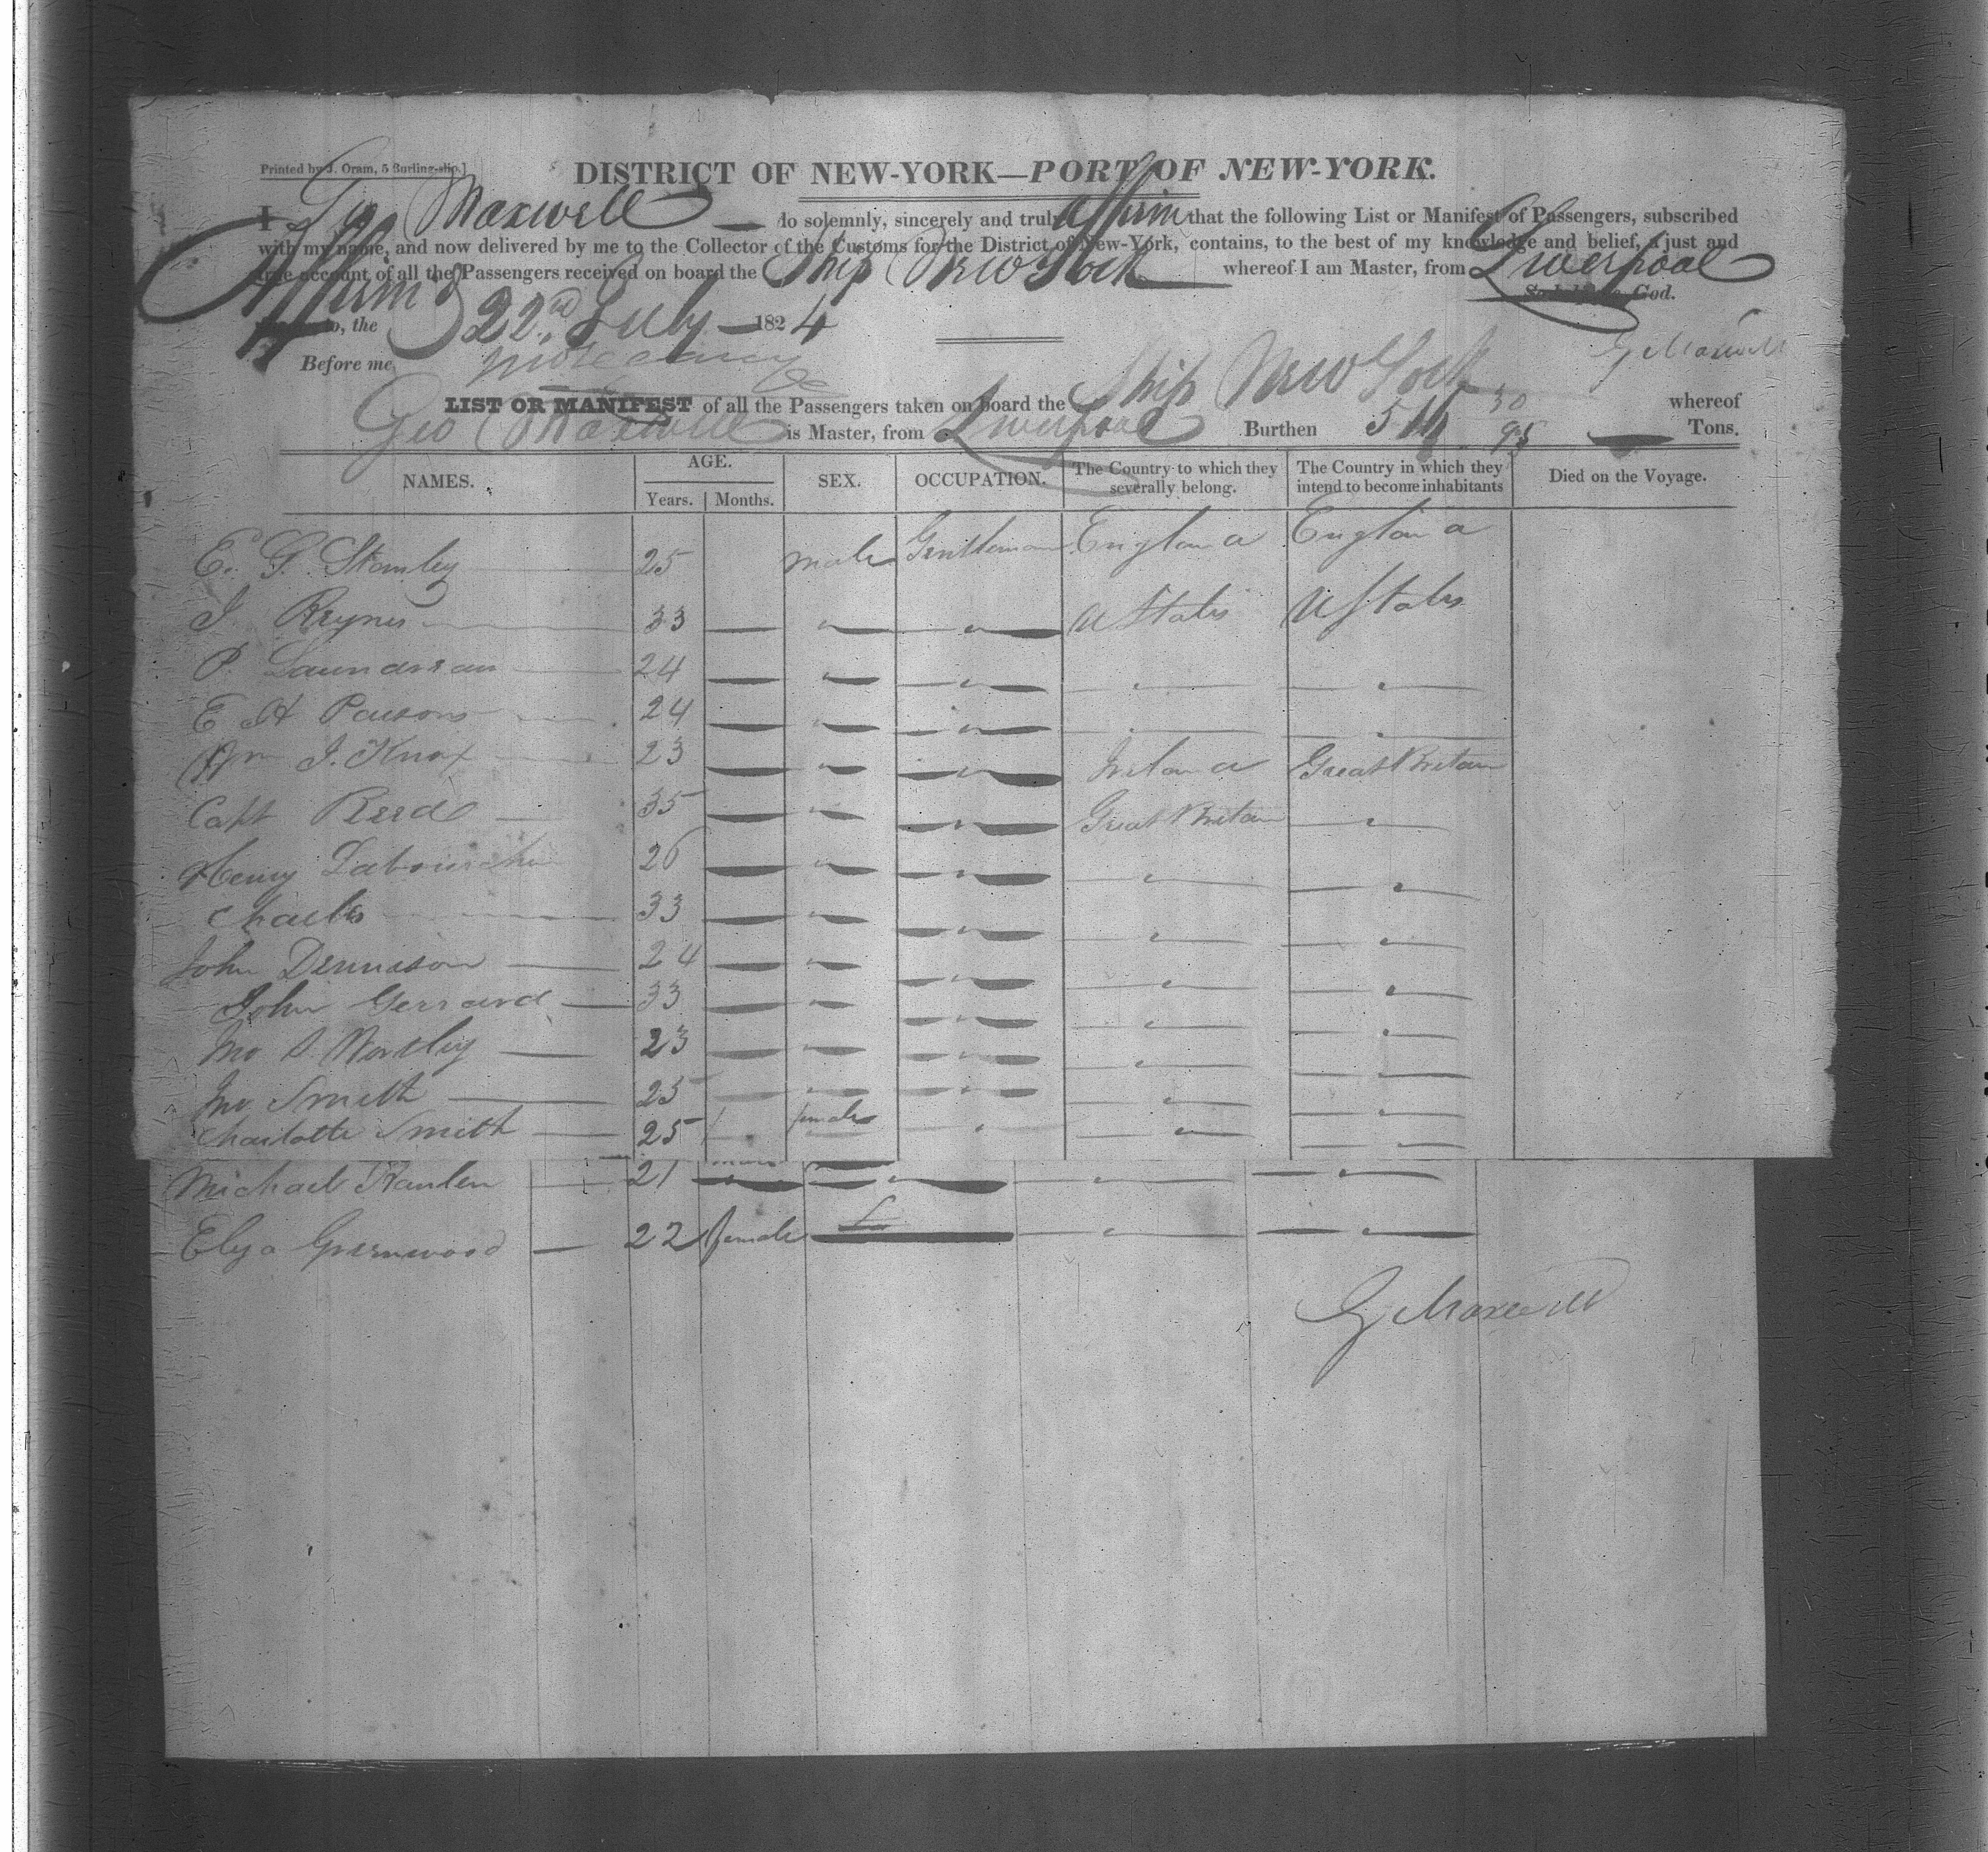 Printed by J. Oram, 5 Burling-slip.]
DISTRICT OF NEW-YORK—PORT OF NEW-YORK.
I Geo Maxwell do solemnly, sincerely and truly affirm that the following List or Manifest of Passengers, subscribed
with my name, and now delivered by me to the Collector of the Customs for the District of New-York, contains, to the best of my knowledge and belief, a just and
true account of all the Passengers received on board the Ship New York whereof I am Master, from Liverpool
So help me God.
Affirmd to, the 22nd July 1824
G Maxwell
Before me
LIST OR MANIFEST of all the Passengers taken on board the Ship New York whereof
Geo Maxwell is Master, from Liverpool Burthen 516 30/95 Tons.
NAMES. AGE. Years. Months. SEX. OCCUPATION. The Country to which they severally belong. The Country in which they intend to become inhabitants Died on the Voyage.
E. G. Stanley 25 male Gentleman England England
J Reynes 33 " " U States U States
P. 24 " " " "
E H Parsons 24 " " " "
Wm J. Knox 23 " " Ireland Great Britain
Capt Reed 35 " " Great Britain "
Henry Labouchere 26 " " " "
Charles 33 " " " "
John Dennison 24 " " " "
John Gerrard 33 " " " "
Jno S. Wortley 23 " " " "
Jno Smith 25 " " " "
Charlotte Smith 25 female " " "
Michael Hanlen 21 " " "
Elyza Greenwood 22 female " "
G Maxwell